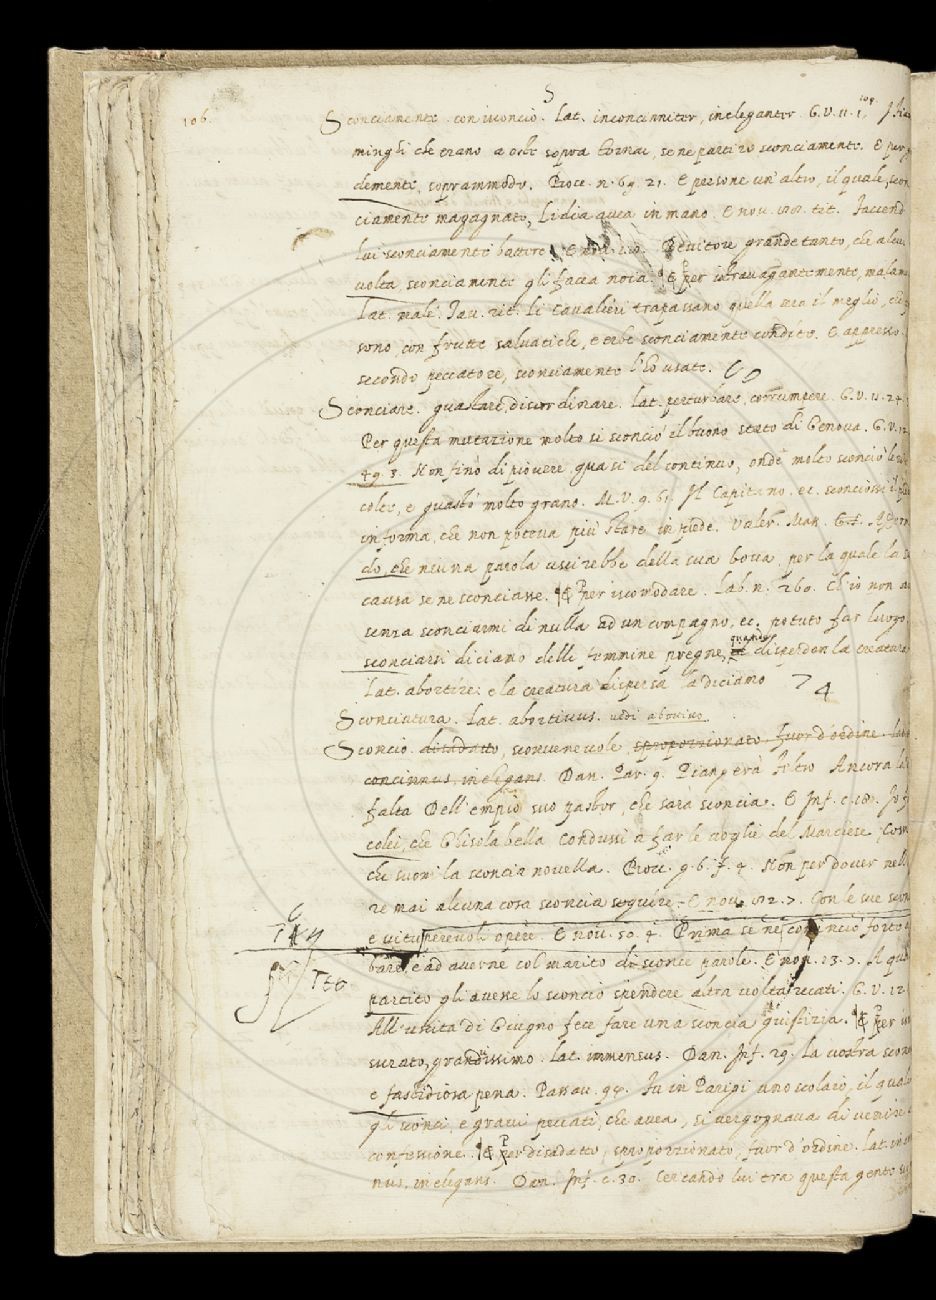 106.
S
Sconciamente. con isconcio. Lat. inconcinniter, ineleganter. G.V. 11. 1, 109.
minghi che erano a oste sopra Tornai, se ne partiro sconciamente. E per
demente, soprammodo. Bocc. n. 69. 21. E persone un' altro, il quale, scon
ciamente magagnato, Lidia avea in mano. E nou. tit. Faccend
lui sconciamente battere. E nou. Bevitore grande tanto, che alcu
volta sconciamente gli facea noia. E per istravagantemente, malam
Lat. male. Tav. rit. Li cavalieri trapassano quella sera il meglio, che
sono, con frutte salvatiche, e erbe sconciamente condite. E appresso.
secondo peccatore, sconciamente l'ho usate.
Sconciare. guastare, disordinare. Lat. perturbare, corrumpere. G.V. 11. 24.
Per questa mutazione molto si sconciò il buono stato di Genova. G.V. 12.
49. 3. Non finò di piovere quasi del continuo, onde molto sconciò le
colte, e guastò molto grano. M.V. 9. Il Capitano. ec. sconciossi il
in forma, che non poteva più stare in piede. Valer. Mas.
do, che neuna parola uscirebbe della sua bocca, per la quale la
causa se ne sconciasse. E per iscomodare. Lab. n. 260. Ch' io non
senza sconciarmi di nulla ad un compagno, ec. potuto far luogo.
quando
sconciarsi diciamo delle femmine pregne, disperdon la creatura
Lat. abortire: e la creatura dispersa la diciamo
74
Sconciatura. Lat. abortivus. vedi abortivo
Sconcio. disadatto, sconvenevole, sproporzionato fuor d'ordine. Lat.
concinnus, inelegans. Dan. Par. 9. Piangerà Feltro Ancora la
falta Dell' empio suo pastor, che sarà sconcia. E Inf. c. 18. Io
colei, che Ghisola bella Condussi a far le voglie del Marchese, Co
che suoni la sconcia novella. Bocc. g. 6. f. 4. Non per dover nell
re mai alcuna cosa sconcia seguire. E nou. 7. Con le sue scon
e vituperevoli opere. E nou. 50. 4. Prima se ne cominciò forte
bare, e ad averne col marito di sconce parole. E nou. 23. 7. A qu
partito gli avesse lo sconcio spendere altra volta recati. G.V. 12.
All' uscita di Giugno fece fare una sconcia giustizia. E per
surato, grandissimo. Lat. immensus. Dan. Inf. 29. La vostra sconc
e fastidiosa pena. Passav. Fu in Parigi uno scolaio, il quale
gli sconci, e gravi peccati, che avea, si vergognava di venire
confessione. E per disadatto, sproporzionato, fuor d'ordine. Lat.
nus, inelegans. Dan. Inf. c. 30. Cercando lui tra questa gente